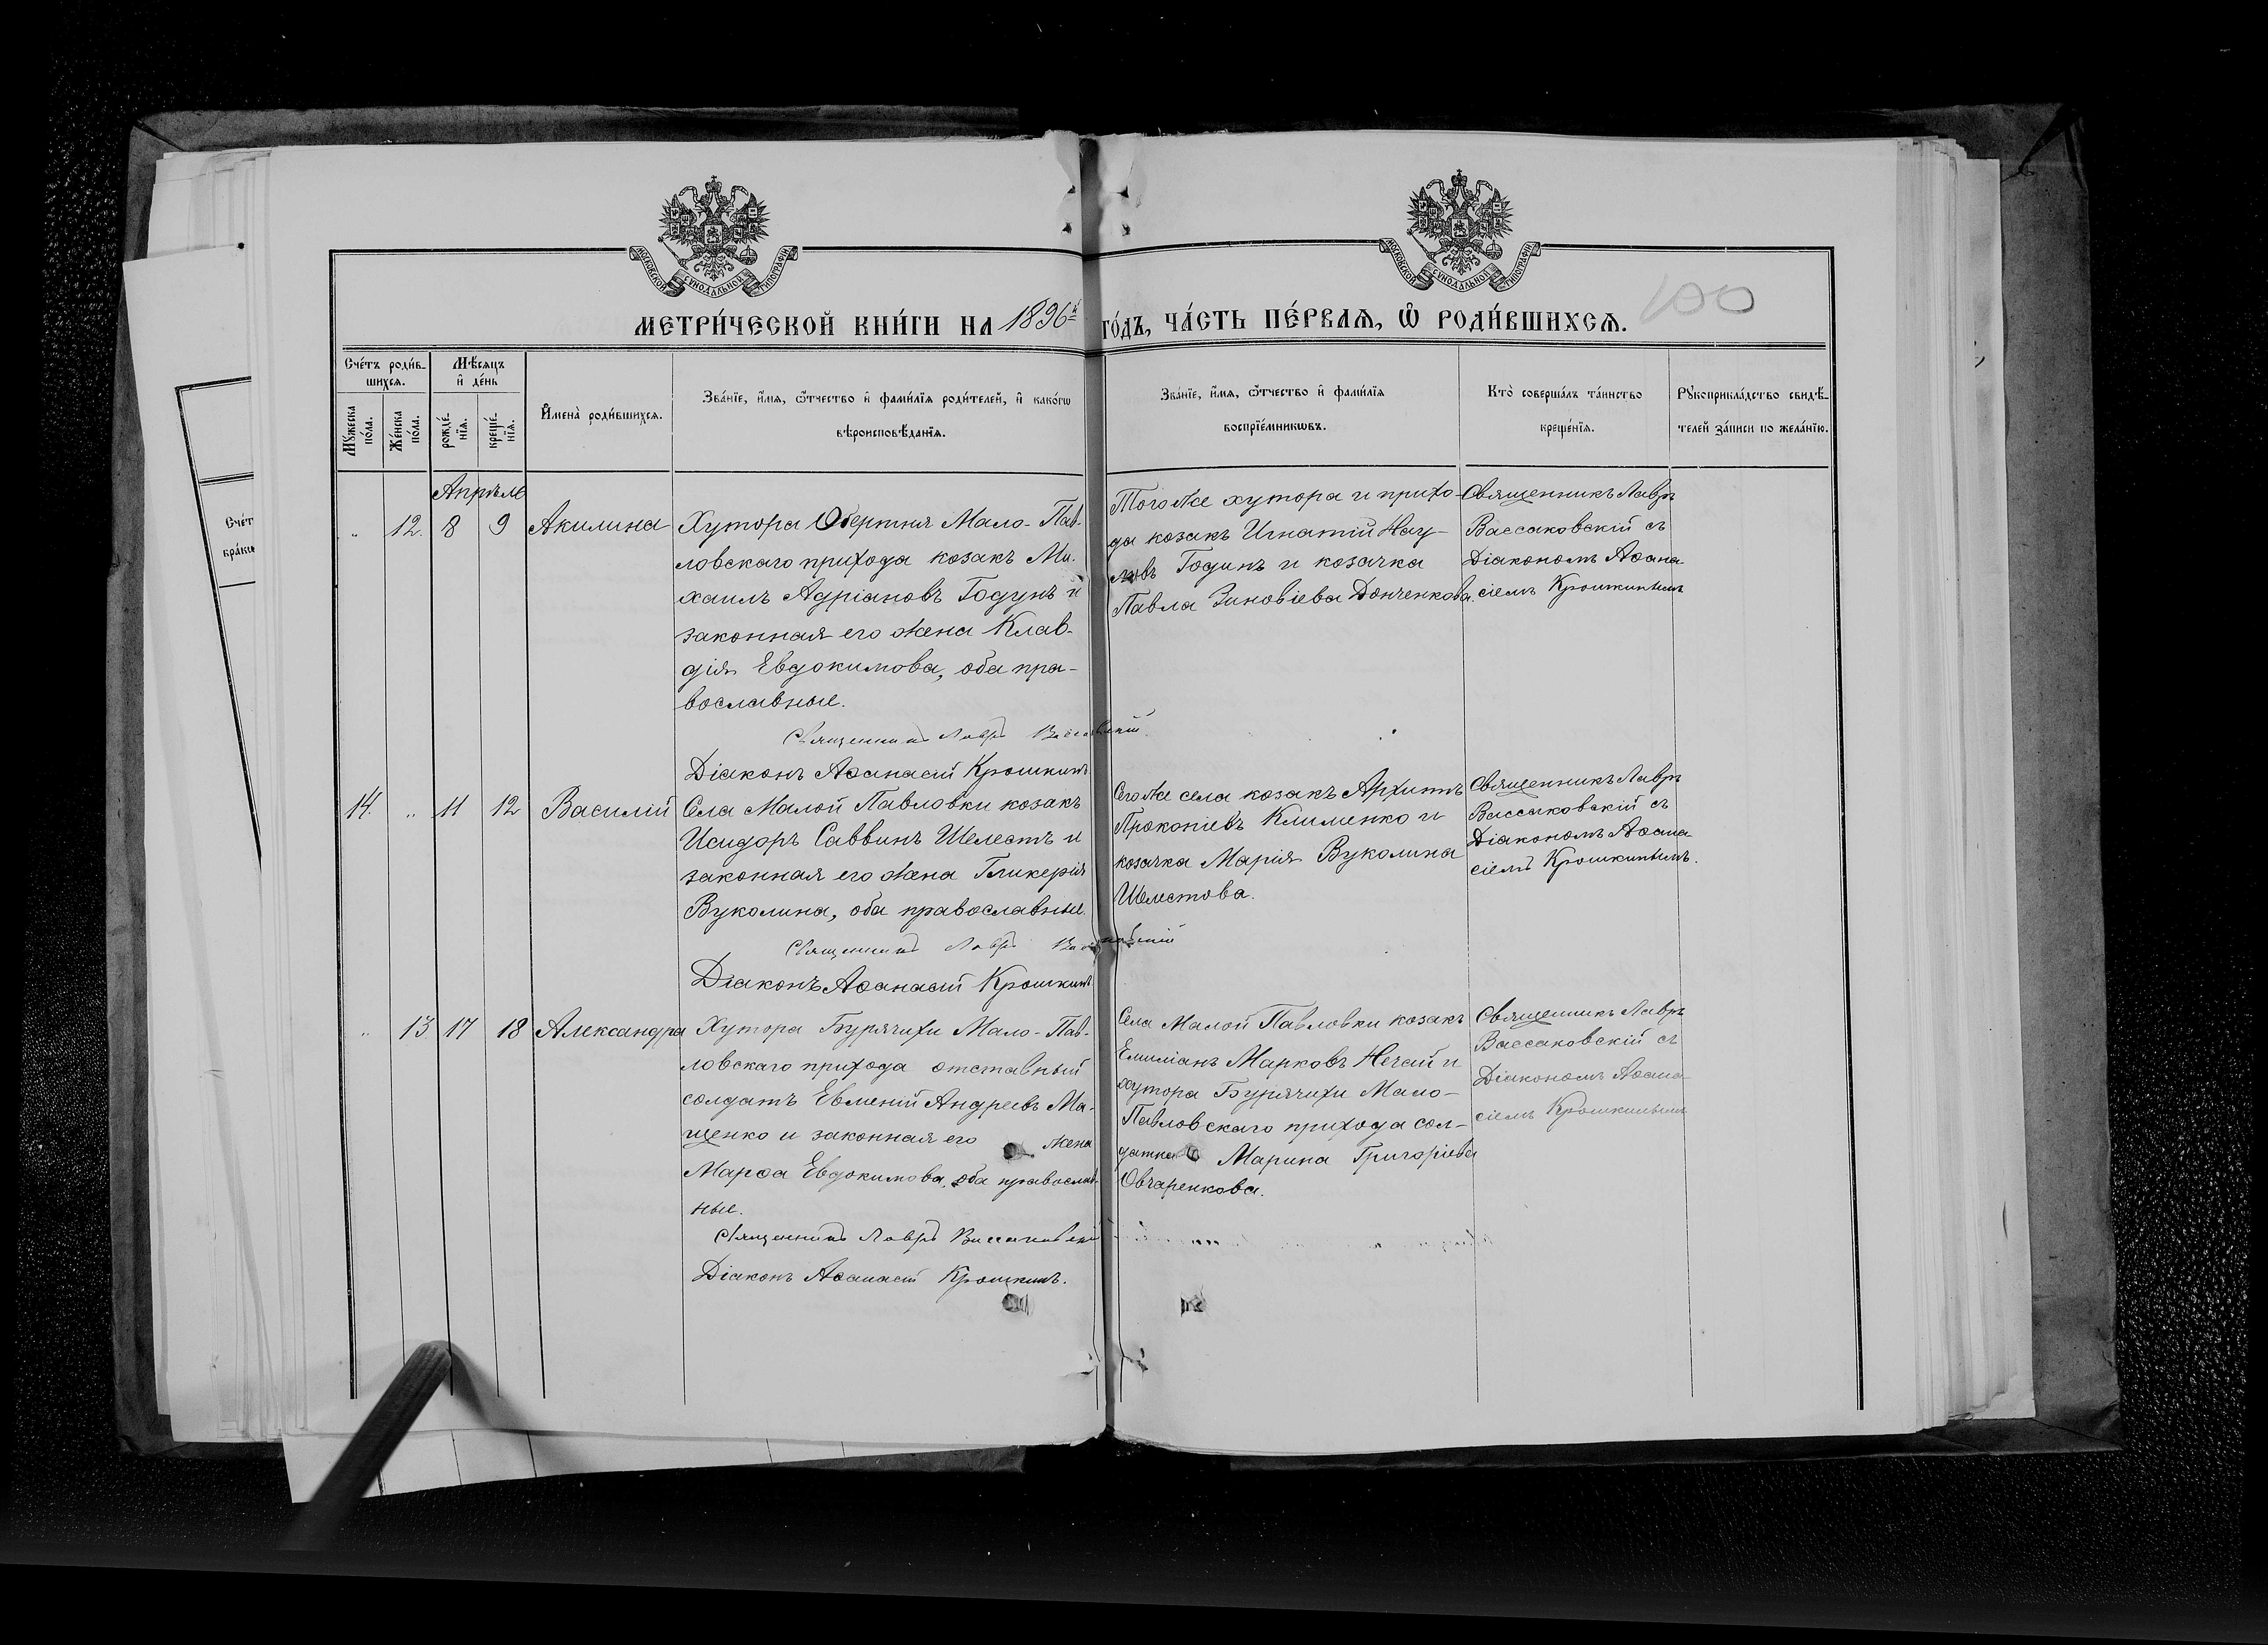 МОСКОВСКОЙ СѴНОДАЛЬНОЙ ТИПОГРАФІИ
МОСКОВСКОЙ СѴНОДАЛЬНОЙ ТИПОГРАФІИ
МЕТРИ́ЧЕСКОЙ КНИ́ГИ НА 1896й ГО́ДЪ, ЧА́СТЬ ПЕ́РВАЯ, Ѡ҆ РОДИ́ВШИХСЯ.
100
Сче́тъ роди́в-
шихся.
Мѣ́сяцъ
и҆ де́нь
Мꙋ́жеска
по́ла.
Же́нска
по́ла.
рожде́-
нїя.
креще́-
нїя.
И҆мена̀ роди́вшихся.
Зва́нїе, и҆́мя, ѻ҆́тчество и҆ фами́лїя роди́телей, и҆ како́гѡ
вѣроисповѣ́данїя.
Зва́нїе, и҆́мя, ѻ҆́тчество и҆ фами́лїя
воспрїе́мникѡвъ.
Кто̀ соверша́лъ та́инство
креще́нїя.
Рꙋкоприкла́дство свидѣ́-
телей за́писи по жела́нїю.
Сче́т
бра́ки
Апрѣль
" 12. 8 9 Акилина
Хутора Обертня Мало-Пав-
ловскаго прихода козакъ Ми-
хаилъ Адріановъ Годунъ и
законная его жена Клав-
дія Евдокимова, оба пра-
вославные.
Священникъ Лавръ Вассаковскій
Діаконъ Аѳанасій Крошкинъ
Того же хутора и прихо-
да козакъ Игнатій Нау-
мовъ Годунъ и козачка
Павла Зиновіева Донченкова.
Священникъ Лавръ
Вассаковскій съ
Діакономъ Аѳана-
сіемъ Крошкинымъ
14. " 11 12 Василій
Села Малой Павловки козакъ
Исидоръ Саввинъ Шелестъ и
законная его жена Гликерія
Вуколина, оба православные.
Священникъ Лавръ Вассаковскій
Діаконъ Аѳанасій Крошкинъ
Сего же села козакъ Архипъ
Прокопіевъ Клименко и
козачка Марія Вуколина
Шелестова.
Священникъ Лавръ
Вассаковскій съ
Діакономъ Аѳана-
сіемъ Крошкинымъ.
" 13. 17 18 Александра
Хутора Бурячихи Мало-Пав-
ловскаго прихода отставный
солдатъ Евменій Андреевъ Ма-
щенко и законная его жена
Марѳа Евдокимова, оба православ-
ные.
Священникъ Лавръ Вассаковскій
Діаконъ Аѳанасій Крошкинъ.
Села Малой Павловки козакъ
Емиліанъ Марковъ Нечай и
хутора Бурячихи Мало-
Павловскаго прихода сол-
датка Марина Григоріева
Овчаренкова.
Священникъ Лавръ
Вассаковскій съ
Діакономъ Аѳана-
сіемъ Крошкинымъ